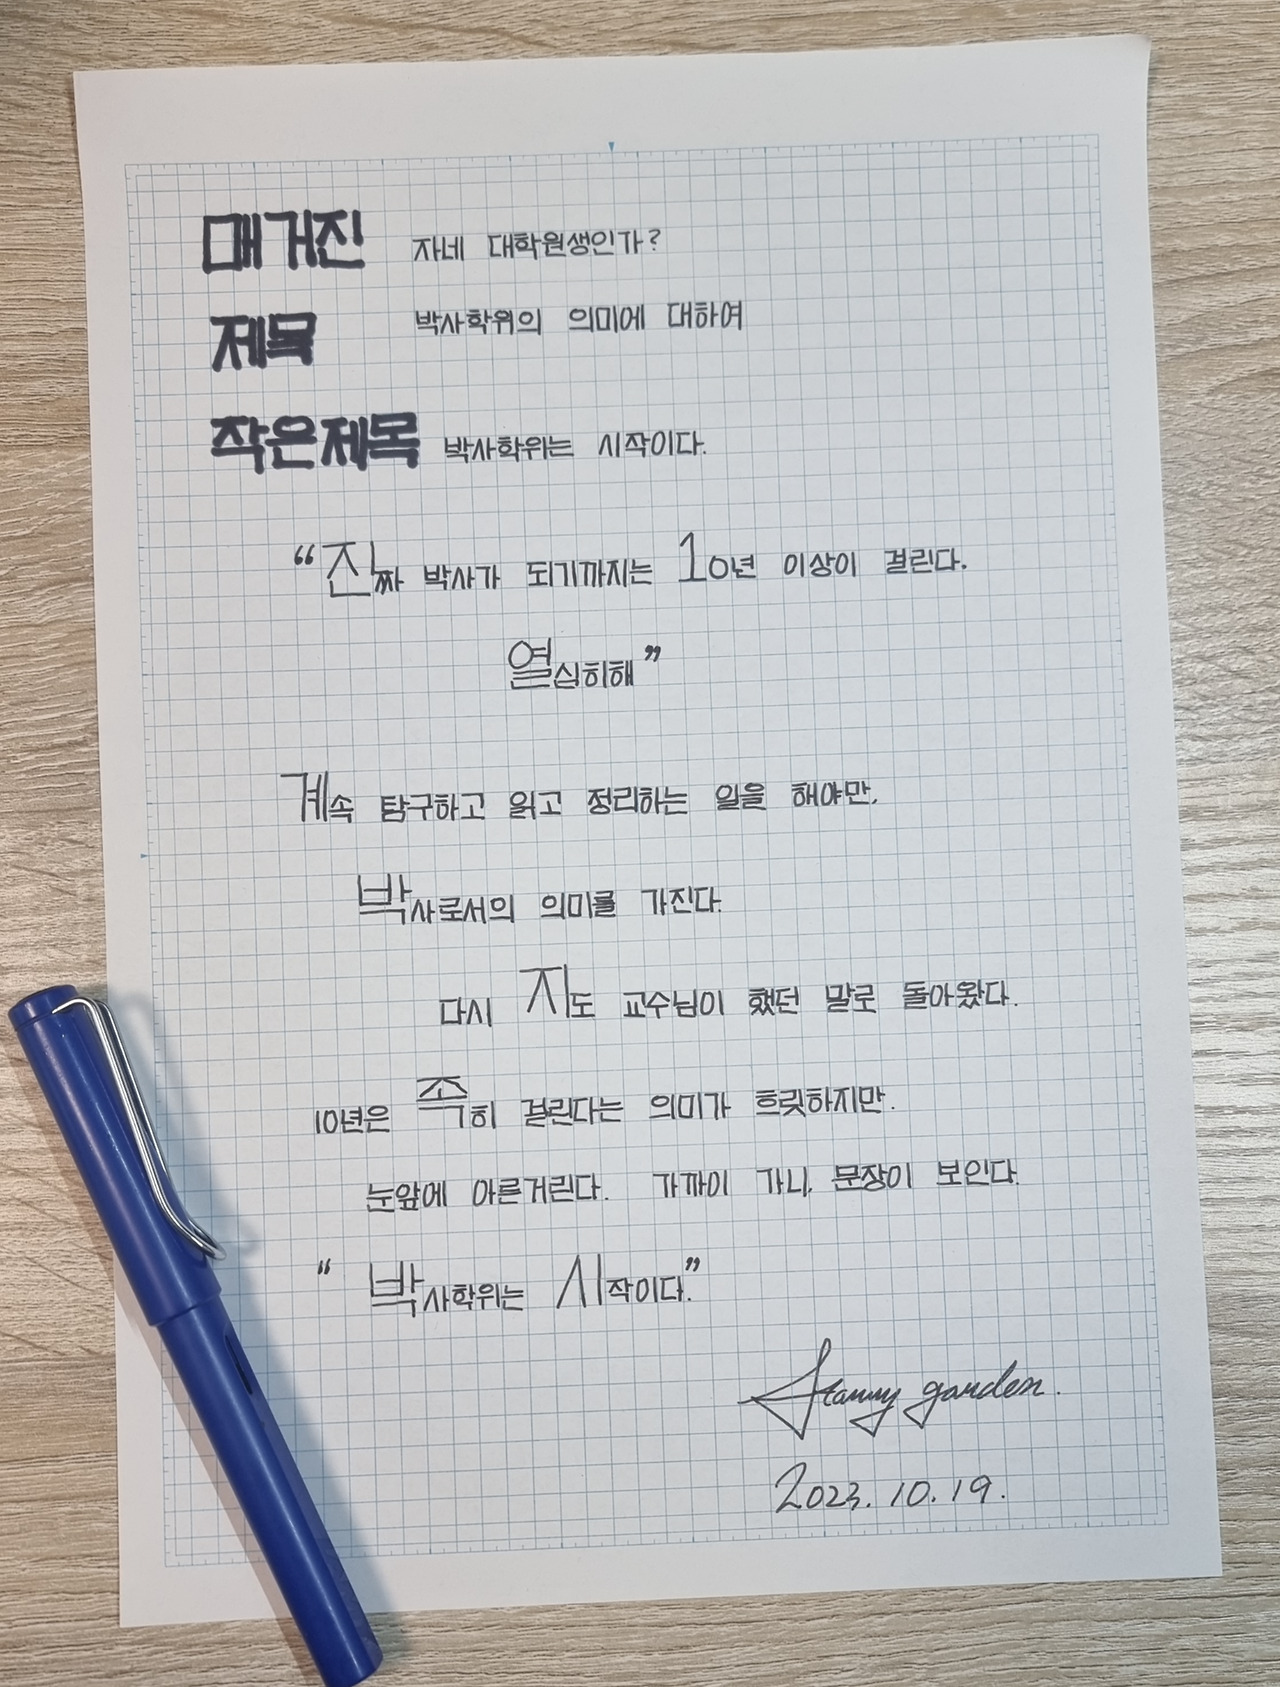 매거진 자네 대학원생인가?
제목 박사학위의 의미에 대하여
작은제목 박사학위는 시작이다.
“진짜 박사가 되기까지는 10년 이상이 걸린다.
열심히해”
계속 탐구하고 읽고 정리하는 일을 해야만,
박사로서의 의미를 가진다.
다시 지도 교수님이 했던 말로 돌아왔다.
10년은 족히 걸린다는 의미가 흐릿하지만.
눈앞에 아른거린다. 가까이 가니, 문장이 보인다.
“ 박사학위는 시작이다.”
Starry garden.
2023. 10. 19.